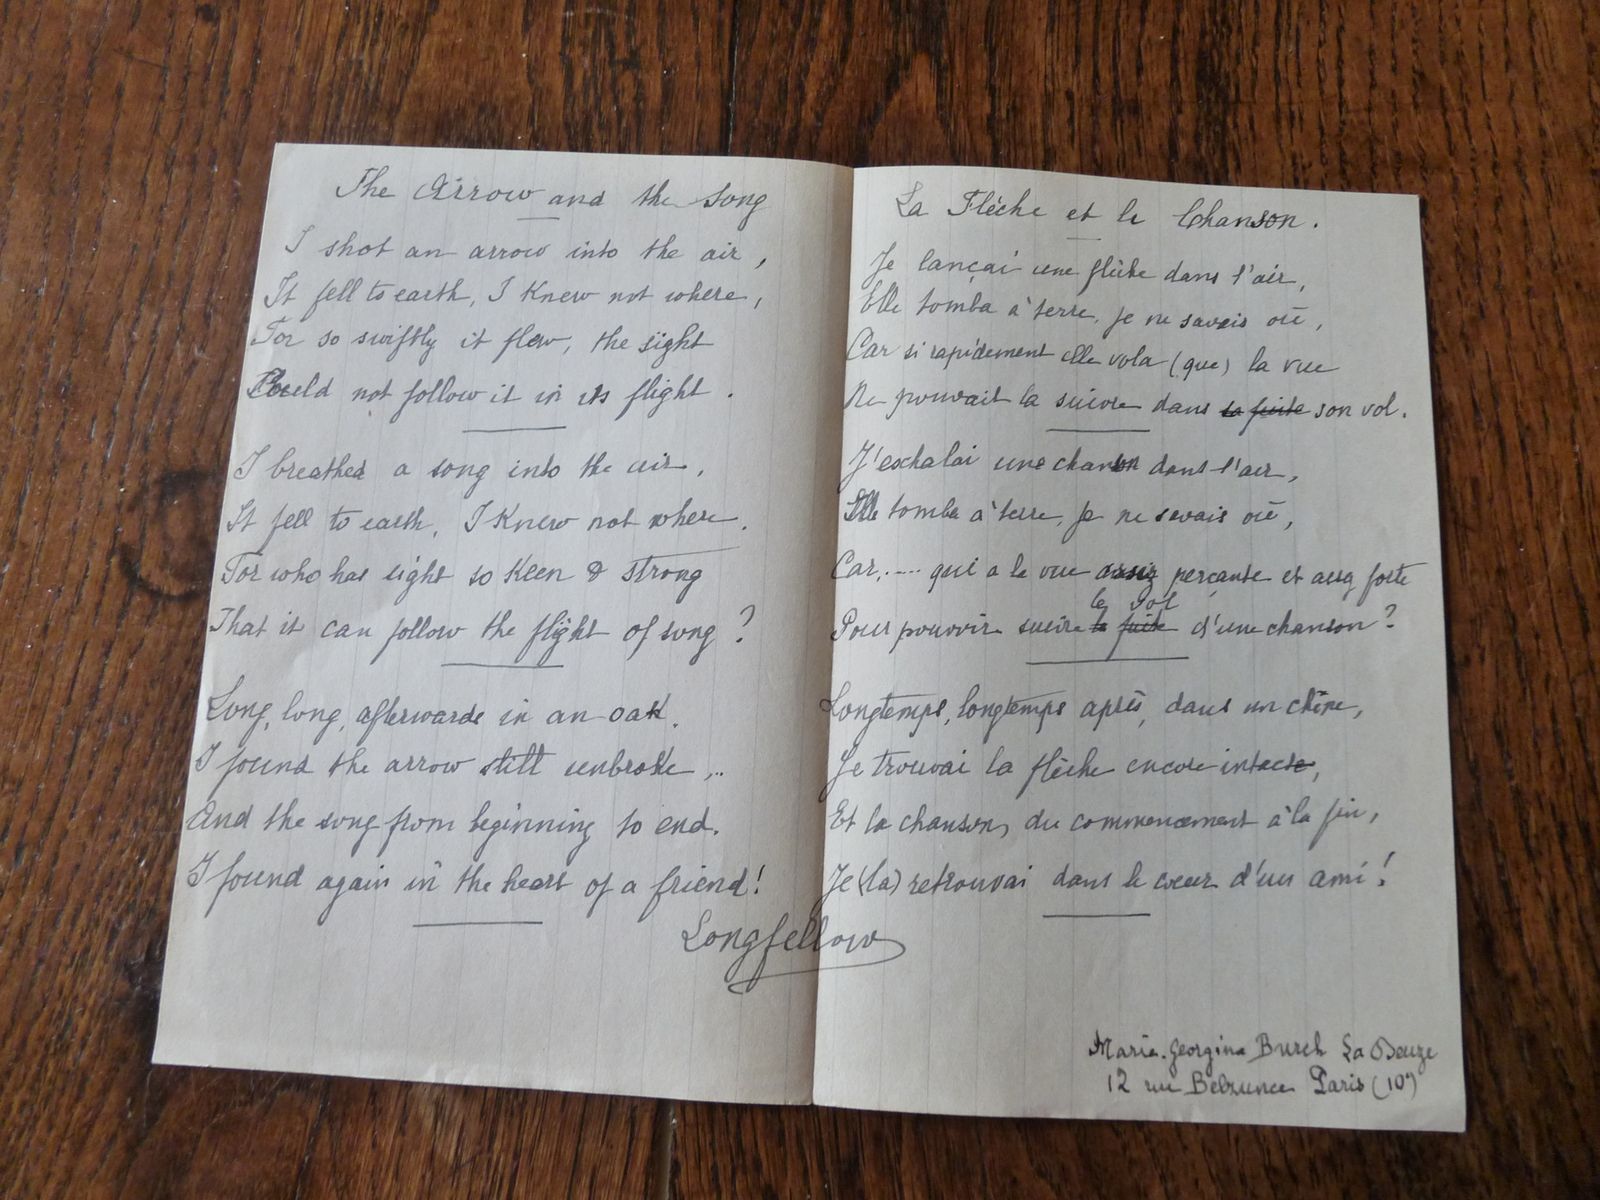 The Arrow and the Song
I shot an arrow into the air,
It fell to earth, I Knew not where,
For so swiftly it flew, the sight
Could not follow it in its flight.
I breathed a song into the air,
It fell to earth, I Knew not where.
For who has sight so Keen & strong
That it can follow the flight of song?
Long, long, afterwards in an oak.
I found the arrow still unbroke,..
And the song from beginning to end.
I found again in the heart of a friend!
Longfellow
La Flèche et le Chanson.
Je lançai une flèche dans l'air,
Elle tomba à terre, je ne savais où,
Car si rapidement elle vola (que) la vue
Ne pouvait la suivre dans sa fuite son vol.
J'exhalai une chanson dans l'air,
Elle tomba à terre, je ne savais où,
Car,.... qui a la vue assez perçante et assez forte
le vol
Pour pouvoir suivre la fuite d'une chanson?
Longtemps, longtemps après, dans un chêne,
Je trouvai la flèche encore intacte,
Et la chanson, du commencement à la fin,
Je (la) retrouvai dans le coeur d'un ami!
Marie-Georgina Burch La Deuze
12 rue Belzunce Paris (10e)